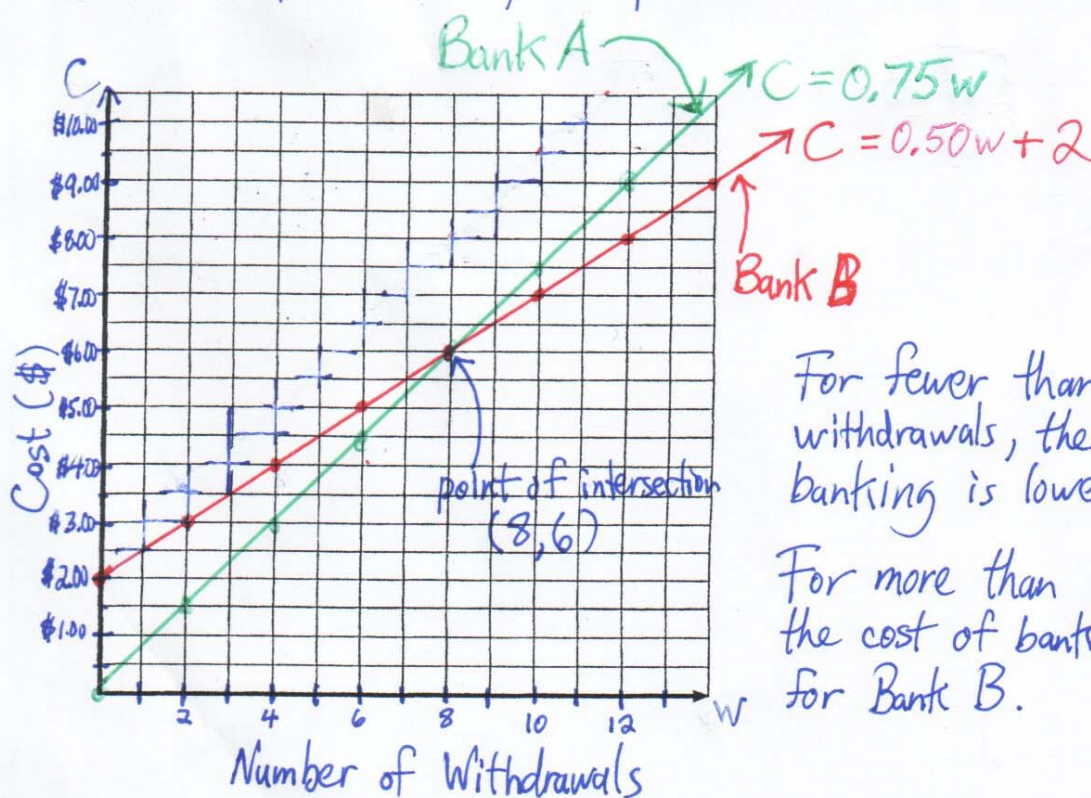 Bank A
C = 0.75w
C = 0.50w + 2
Bank B
C
$10.00
$9.00
$8.00
$7.00
$6.00
$5.00
$4.00
$3.00
$2.00
$1.00
Cost ($)
point of intersection
(8,6)
2 4 6 8 10 12 W
Number of Withdrawals
For fewer than
withdrawals, the
banking is lowe
For more than
the cost of bank
for Bank B.